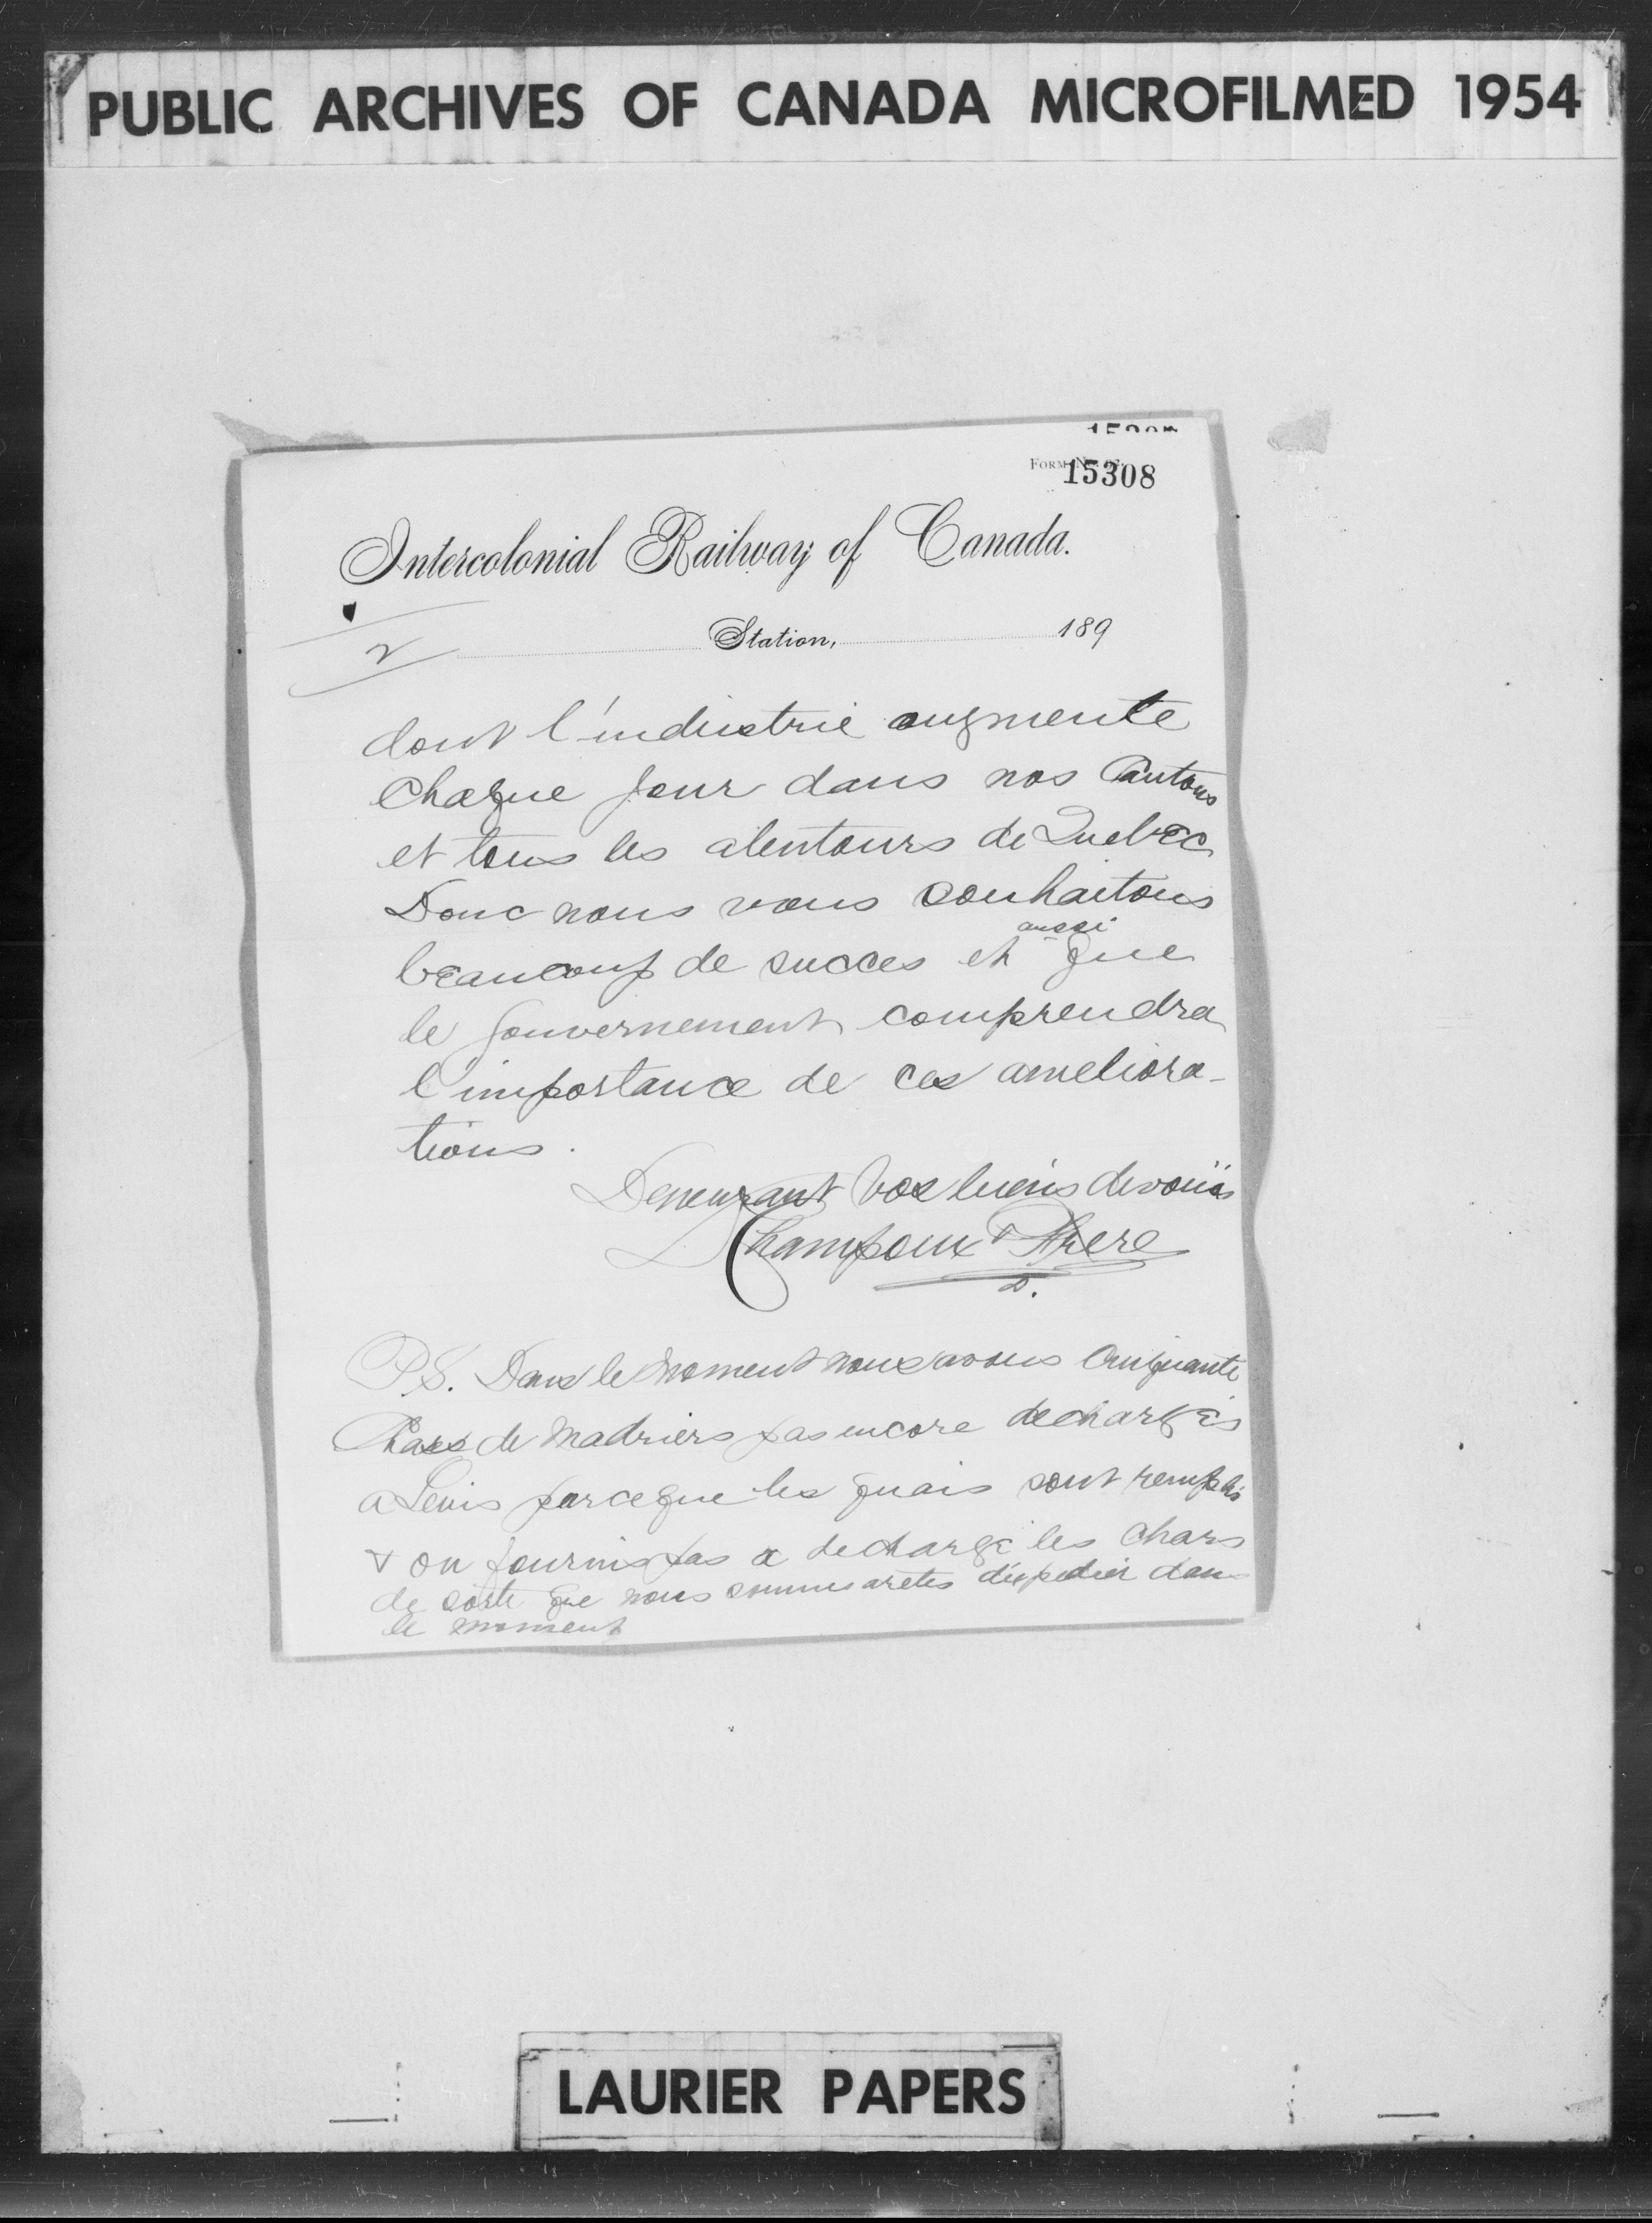 PUBLIC ARCHIVES OF CANADA MICROFILMED 1954
15308
Intercolonial Railway of Canada.
2
Station, 189
dont l'industrie augmente
Chaque jour dans nos Cantons
et tous les alentours de Quebec
Donc nous vous souhaitons
aussi
beaucoup de succes et que
le gouvernement comprendra
l'importance de ces ameliora-
tions.
Demeurant Vos biens devoués
Champoux & Frere
P.S. Dans le moment nous avons Cinquante
Chars de Madriers pas encore dechargés
a Levis parceque les quais sont remplis
& on fournis pas a decharge les Chars
de sorte que nous sommes aretes dexpedier dans
le moment
LAURIER PAPERS